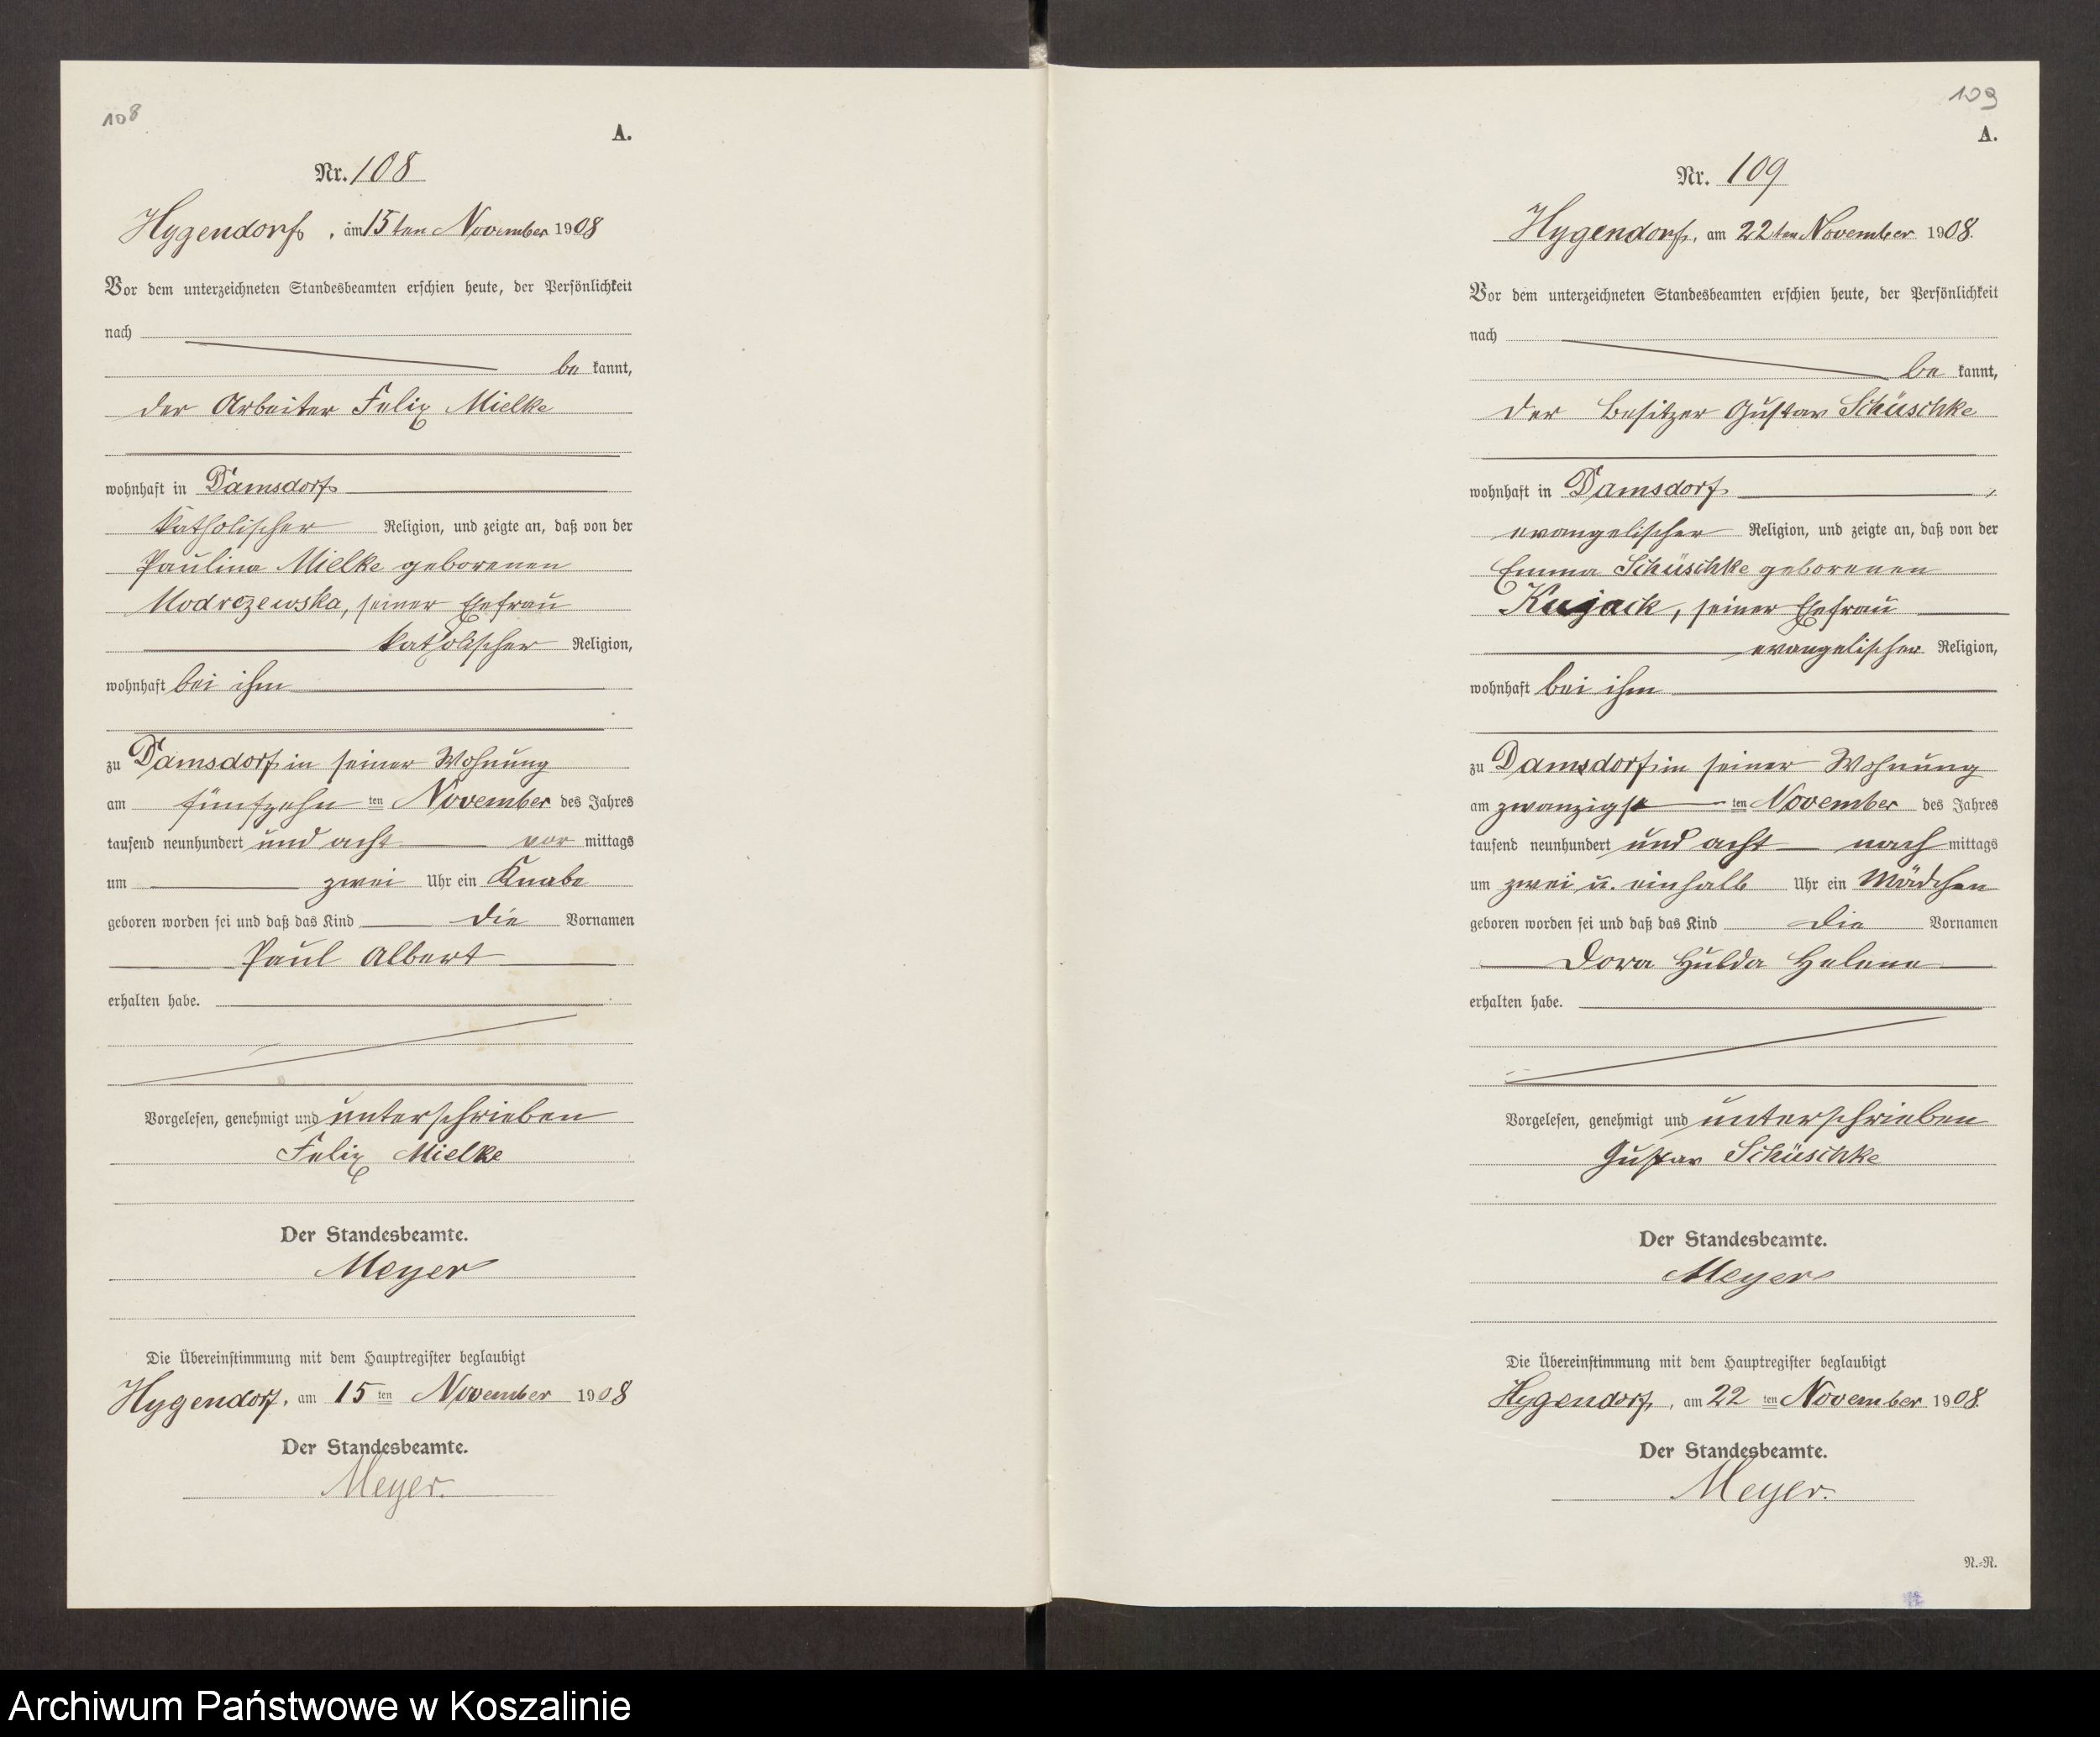 108
A.
Nr. 108
Hygendorf, am 15ten November 1908
Vor dem unterzeichneten Standesbeamten erschien heute, der Persönlichkeit
nach
be kannt,
der Arbeiter Felix Mielke
wohnhaft in Damsdorf
katholischer Religion, und zeigte an, daß von der
Paulina Mielke geborenen
Modrczewska, seiner Ehefrau
katholischer Religion,
wohnhaft bei ihm
zu Damsdorf in seiner Wohnung
am fünfzehn ten November des Jahres
tausend neunhundert und acht vor mittags
um zwei Uhr ein Knabe
geboren worden sei und daß das Kind die Vornamen
Paul Albert
erhalten habe.
Vorgelesen, genehmigt und unterschrieben
Felix Mielke
Der Standesbeamte.
Meyer
Die Übereinstimmung mit dem Hauptregister beglaubigt
Hygendorf, am 15 ten November 1908
Der Standesbeamte.
Meyer.
109
A.
Nr. 109
Hygendorf, am 22ten November 1908.
Vor dem unterzeichneten Standesbeamten erschien heute, der Persönlichkeit
nach
be kannt,
der Besitzer Gustav Schüschke
wohnhaft in Damsdorf,
evangelischer Religion, und zeigte an, daß von der
Emma Schüschke geborenen
Kujack, seiner Ehefrau
evangelischer Religion,
wohnhaft bei ihm
zu Damsdorf in seiner Wohnung
am zwanzigst ten November des Jahres
tausend neunhundert und acht nach mittags
um zwei u. einhalb Uhr ein Mädchen
geboren worden sei und daß das Kind die Vornamen
Dora Hulda Helene
erhalten habe.
Vorgelesen, genehmigt und unterschrieben
Gustav Schüschke
Der Standesbeamte.
Meyer
Die Übereinstimmung mit dem Hauptregister beglaubigt
Hygendorf, am 22 ten November 1908.
Der Standesbeamte.
Meyer.
N.=N.
Archiwum Państwowe w Koszalinie